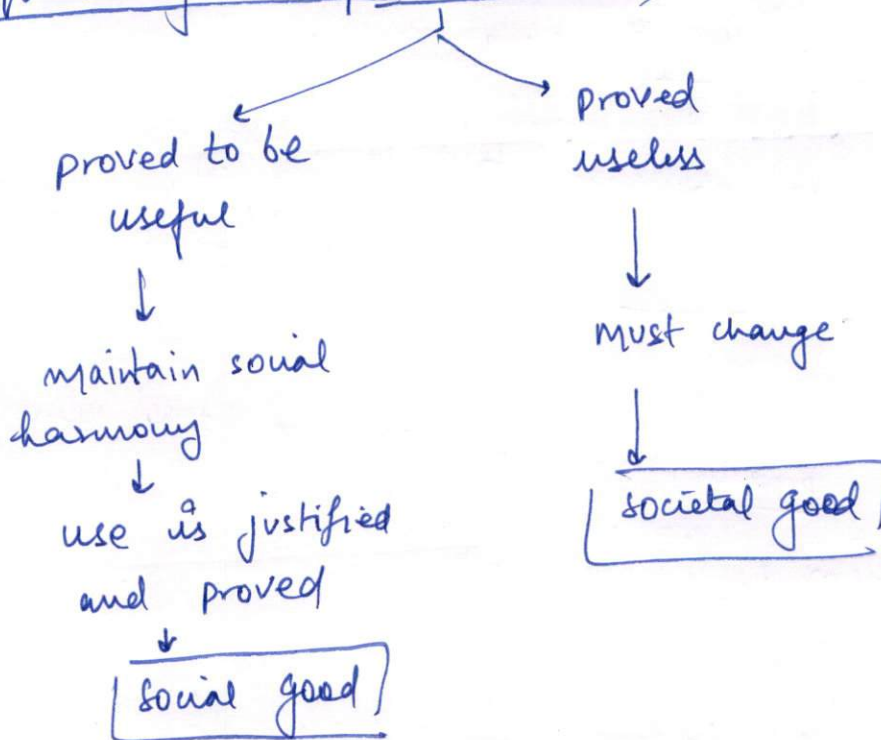 proved to be
useful
maintain social
harmony
use is justified
and proved
social good
proved
useless
must change
societal good